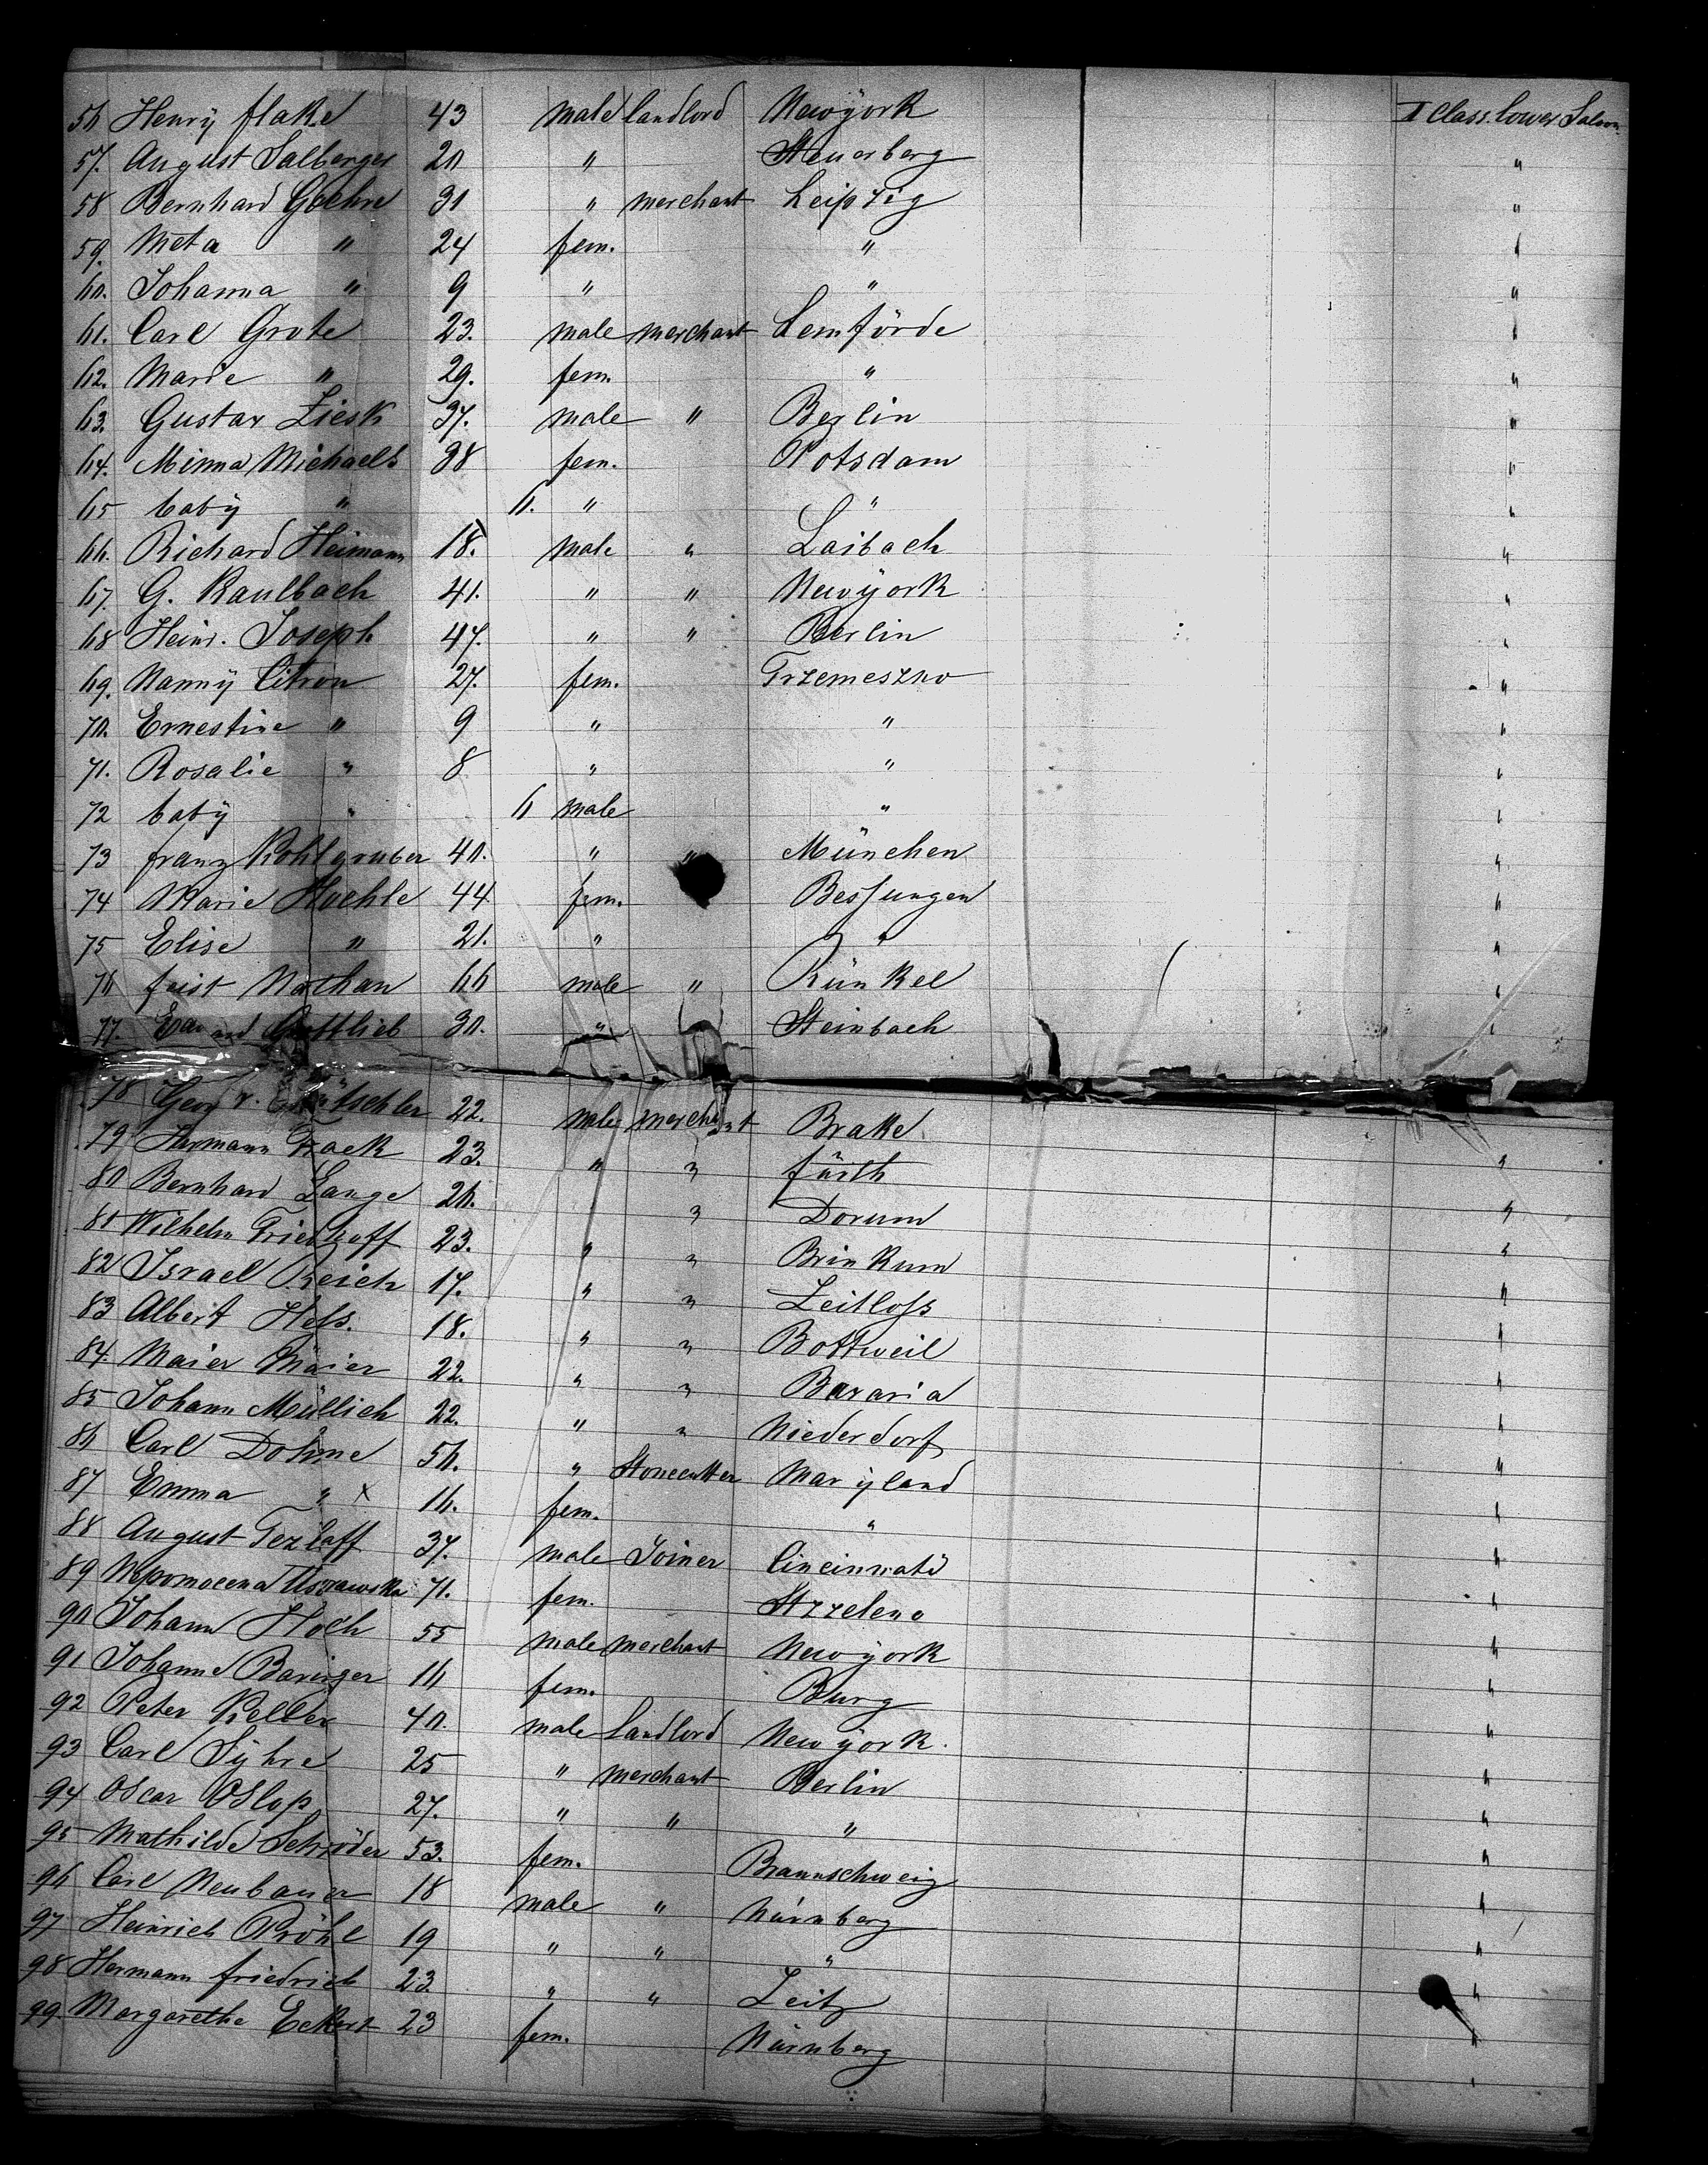 56 Henry Flake 43 male landlord Newyork II Class. lower Saloon
57. August Salberger 20 " Steuerberg "
58 Bernhard Goehre 31 " merchant Leipzig "
59. Meta " 24 fem. " "
60. Johanna " 9 " " "
61. Carl Grote 23. male merchant Lemförde "
62. Marie " 29. fem. " "
63. Gustav Ziesk 37. male " Berlin "
64. Minna Michaels 38 fem. Potsdam "
65 baby " 6. " " "
66. Richard Heimann 18. male " Laibach "
67. G. Kaulbach 41. " " Newyork "
68 Heinr. Joseph 47. " " Berlin "
69. Nanny Citron 27. fem. Trzemeszno "
70. Ernestine " 9 " " "
71. Rosalie " 8 " " "
72 baby " 6 male " "
73 Franz Kohlgruber 40. " " München "
74 Marie Hoehle 44 fem. Bessungen "
75 Elise " 21. " " "
76 Feist Nathan 66 male " Runkel "
77. Gottlieb 30. " Steinbach "
78 22. male merchant Brake
79 Hermann Frack 23. " " Fürth "
80 Bernhard Lange 26. " Dorum "
81 Wilhelm Friedhoff 23. " " Brinkum "
82 Israel Reich 17. " " Zeitloss "
83 Albert Hess. 18. " " Bottweil "
84. Maier Maier 22. " " Bavaria "
85 Johann Müllich 22. " " Niederdorf "
86 Carl Dohme 56. " Stonecutter Maryland "
87 Emma " x 16. fem. " "
88 August Tezlaff 37. male Joiner Cincinnati "
89 Nepomocena 71. fem. Strzelno "
90 Johann Hoch 55 male merchant Newyork "
91 Johanne Baringer 16 fem. Burg "
92 Peter Keller 40. male landlord Newyork. "
93 Carl Syhre 25 " merchant Berlin "
94 Oscar Oslop 27. " " " "
95 Mathilde Schröder 53. fem. Braunschweig "
96 Carl Neubauer 18 male " Nürnberg "
97 Heinrich Pröhl 19 " " " "
98 Hermann Friedrich 23 " " Zeitz "
99. Margarethe Eckert 23 fem. Nürnberg "